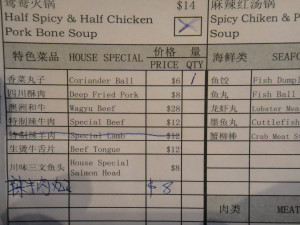 鸳鸯火锅 $14 麻辣红汤锅
Half Spicy & Half Chicken Spicy Chicken & Po
Pork Bone Soup Soup
特色菜品 HOUSE SPECIAL 价格 PRICE 量 QTY 海鲜类 SEAFO
香菜丸子 Coriander Ball $6 1 鱼饺 Fish Dump
四川酥肉 Deep Fried Pork $8 鱼丸 Fish Ball
澳洲和牛 Wagyu Beef $28 龙虾丸 Lobster Mea
特制辣牛肉 Special Beef $12 墨鱼丸 Cuttlefish
特制辣羊肉 Special Lamb $12 蟹柳棒 Crab Meat S
生烫牛舌片 Beef Tongue $12
川味三文鱼头 House Special Salmon Head $8
辣牛肉丸 $8
肉类 MEAT